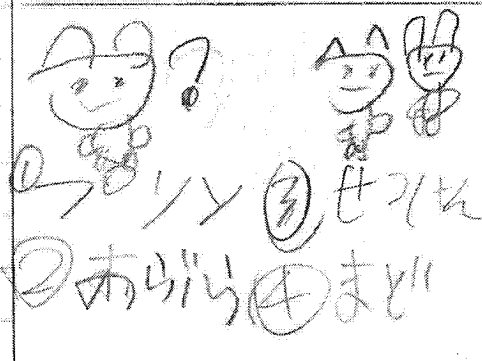 ?
① ③ せっけん
② あぶら ④ まど